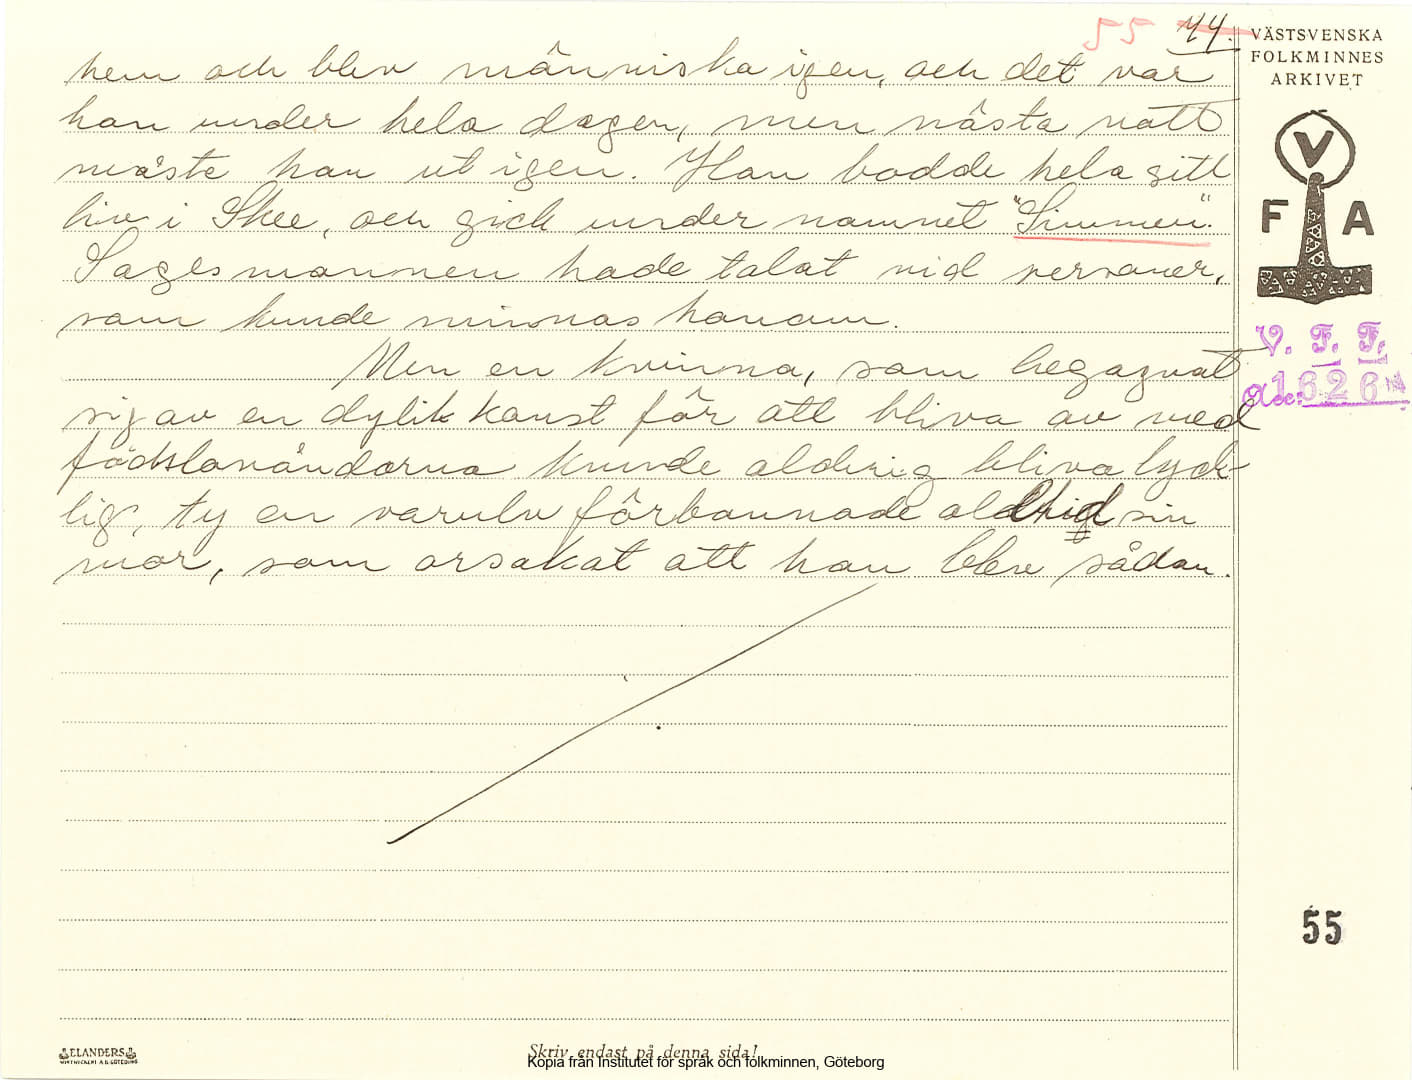 55 44.
VÄSTSVENSKA
FOLKMINNES
ARKIVET
hem och blev människa igen, och det var
han under hela dagen, men nästa natt
måste han ut igen. Han bodde hela sitt
liv i Skee, och gick under namnet "Simmen".
Sagesmannen hade talat vid personer,
som kunde minnas honom.
Men en kvinna, som begagnat
sig av en dylik konst för att bliva av med
födslovåndorna kunde aldrig bliva lyck-
lig, ty en varulv förbannade alltid sin
mor, som orsakat att han blev sådan.
V
F A
V. F. F.
Acc: 1626
55
ELANDERS
Skriv endast på denna sida!
Kopia från Institutet för språk och folkminnen, Göteborg